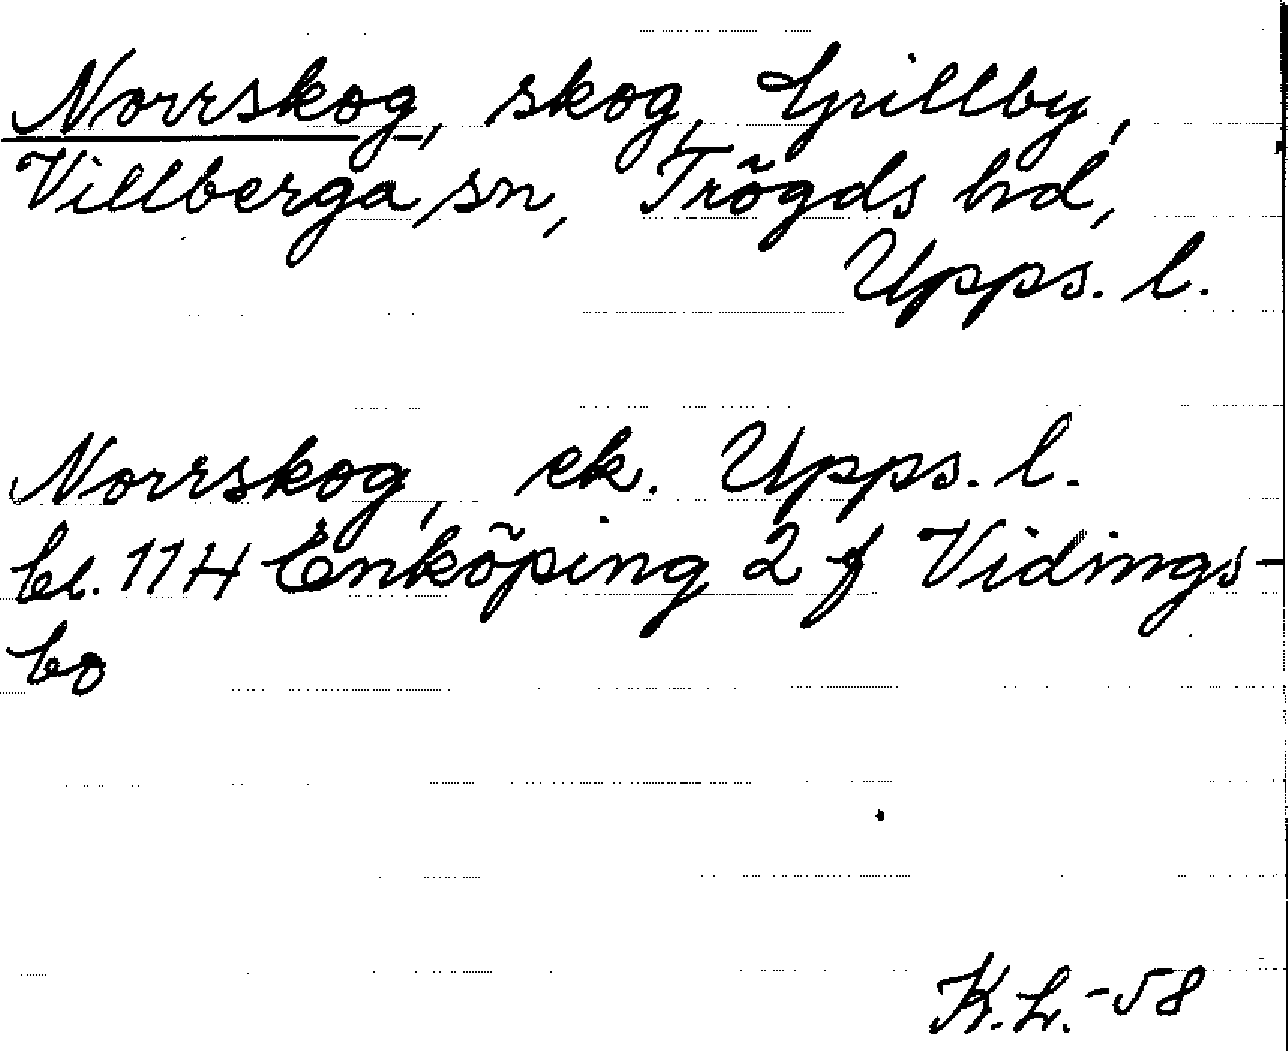 Norrskog, skog, Grillby,
Villberga sn, Trögds hd,
Upps. l.
Norrskog, ek. Upps. l.
bl. 114 Enköping 2 f Vidings-
bo
K.L.-58